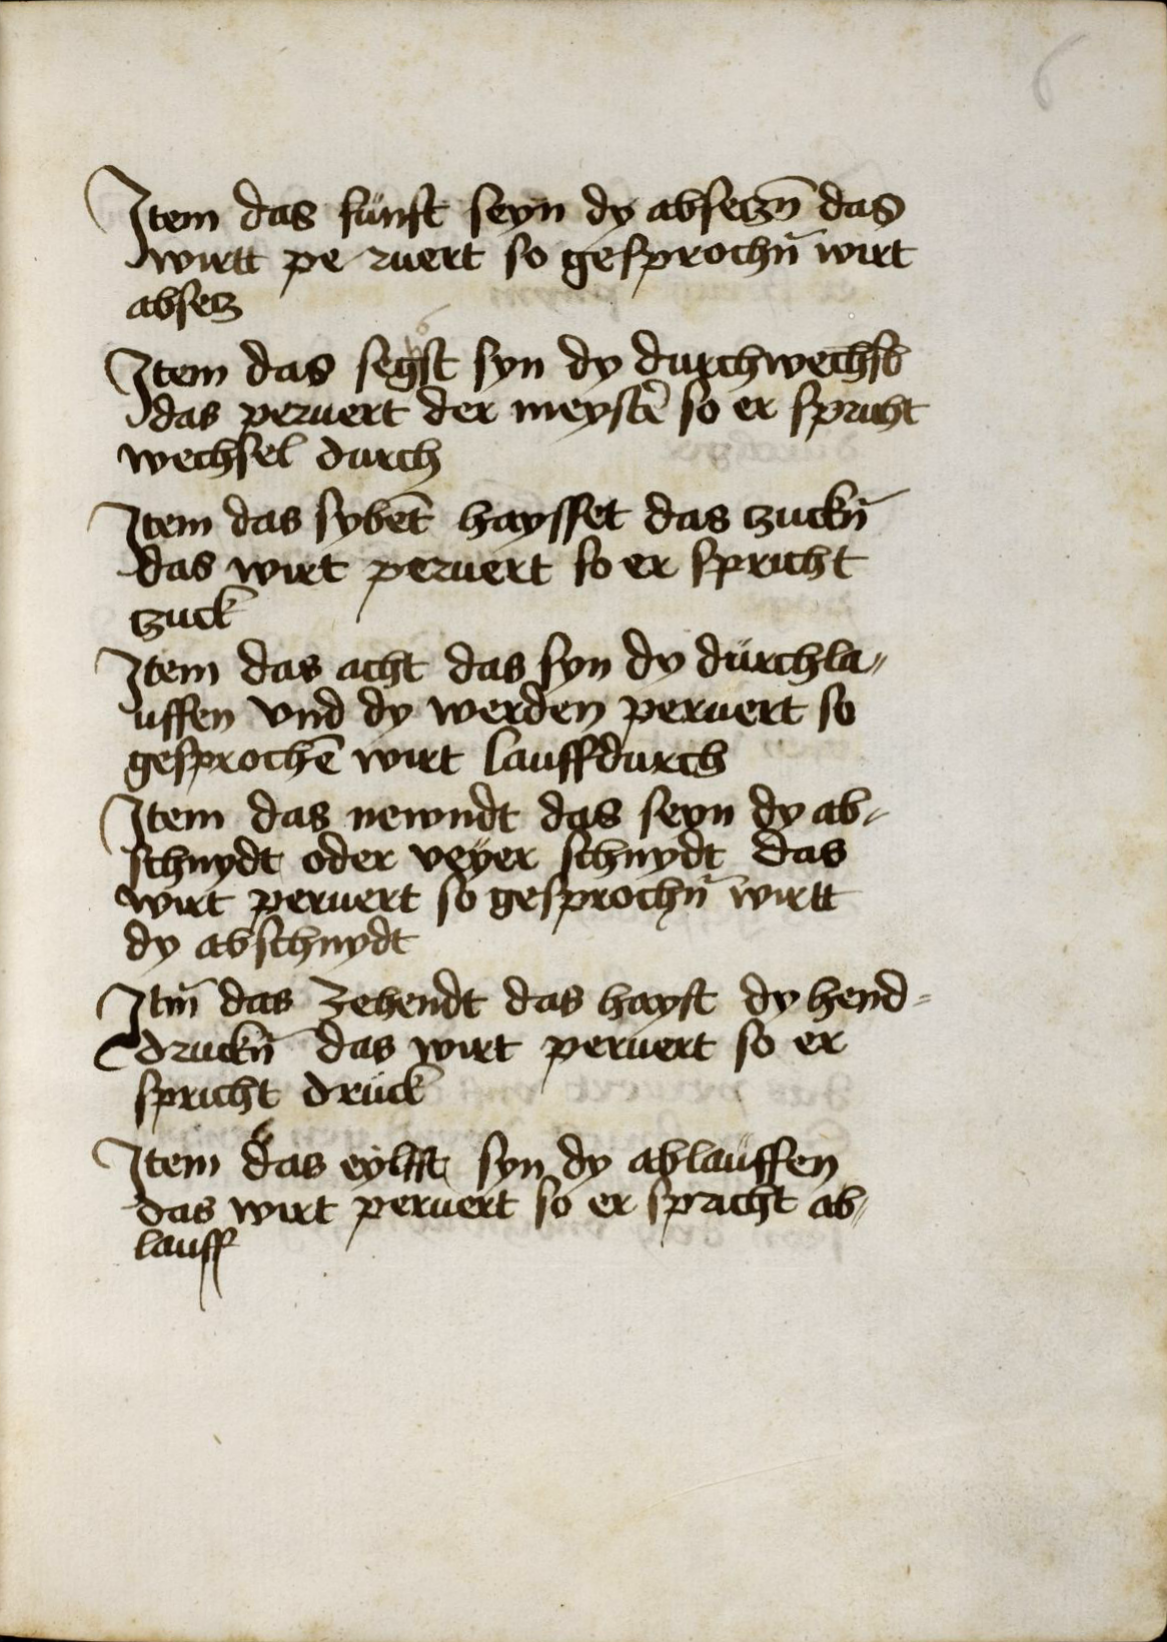 6
Item das fünft seyn dy abseczn̄ das
wirtt pe ruert so gesprochn̄ wirt
absecz
Item das segst syn dy durchwechsl̄
das peruert der meyst̄e so er spricht
wechsel durch
Item das sybet̄ haysset das tzuckn̄
das wirt peruert so er spricht
tzuck
Item das acht das syn dy dürchla〟
uffen vnd dy werden peruert so
gesprochē wirt lauffdurch
Item das newndt das seyn dy ab〟
schnydt oder veÿer schnydt das
wirt peruert so gesprochn̄ wirtt
dy abschnydt
Itm̄ das zehendt das hayst dy hend〟
druckn̄ das wirt peruert so er
spricht drück
Item das eylfft syn dy ablauffen
das wirt peruert so er spricht ab〟
lauff